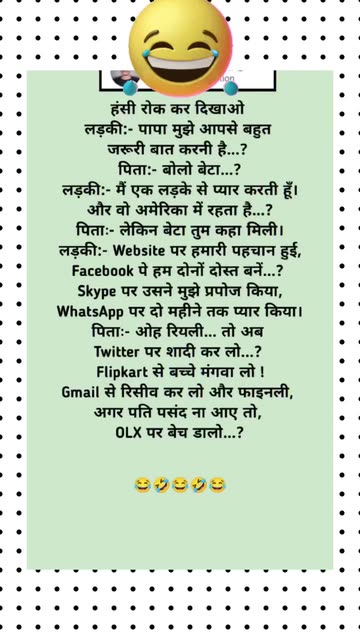 हंसी रोक कर दिखाओ
लड़की:- पापा मुझे आपसे बहुत
जरूरी बात करनी है...?
पिता:- बोलो बेटा...?
लड़की:- मैं एक लड़के से प्यार करती हूँ।
और वो अमेरिका में रहता है...?
पिताः- लेकिन बेटा तुम कहा मिली।
लड़की:- Website पर हमारी पहचान हुई,
Facebook पे हम दोनों दोस्त बनें...?
Skype पर उसने मुझे प्रपोज किया,
WhatsApp पर दो महीने तक प्यार किया।
पिताः- ओह रियली... तो अब
Twitter पर शादी कर लो...?
Flipkart से बच्चे मंगवा लो !
Gmail से रिसीव कर लो और फाइनली,
अगर पति पसंद ना आए तो,
OLX पर बेच डालो...?
😂🤣😂🤣😂